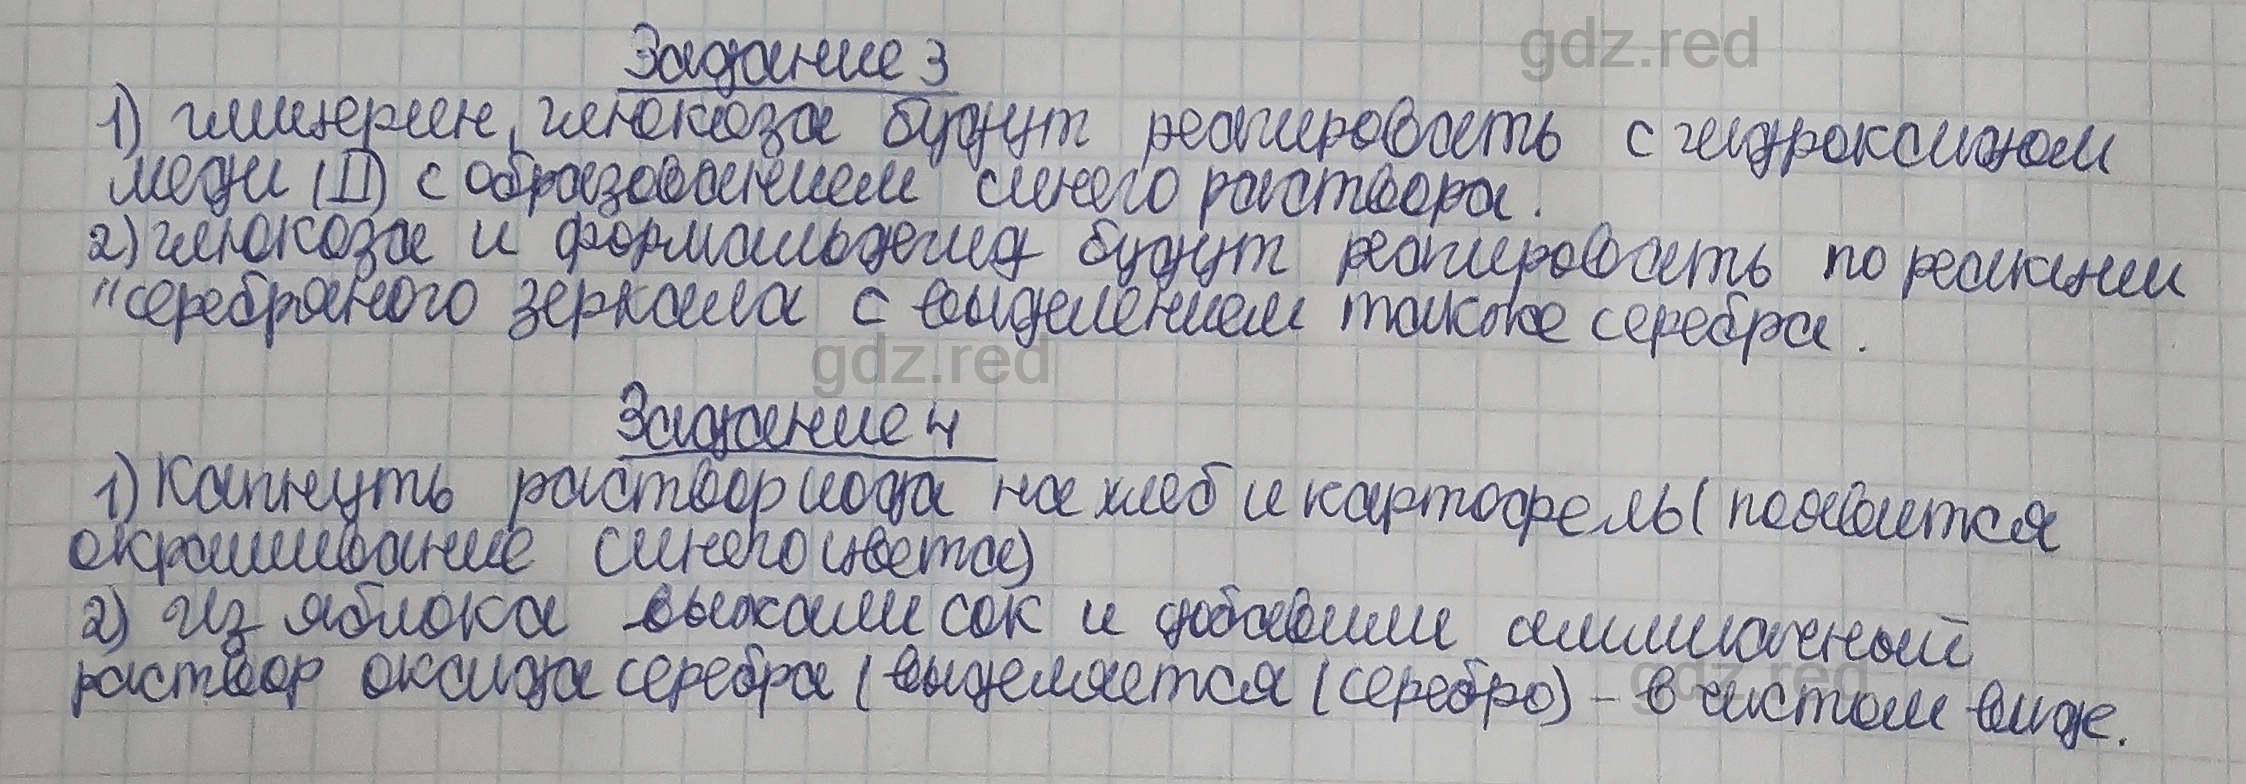 Задание 3
gdz.red
1) глицерин, глюкоза будут реагировать с гидроксидом
меди (II) с образованием синего раствора.
2) глюкоза и формальдегид будут реагировать по реакции
"серебряного зеркала с выделением также серебра.
gdz.red
Задание 4
1) Капнуть раствор иода на хлеб и картофель (появится
окрашивание синего цвета)
2) Из яблока выжали сок и добавили аммиачный
раствор оксида серебра (выделяется (серебро) - в чистом виде.
gdz.red